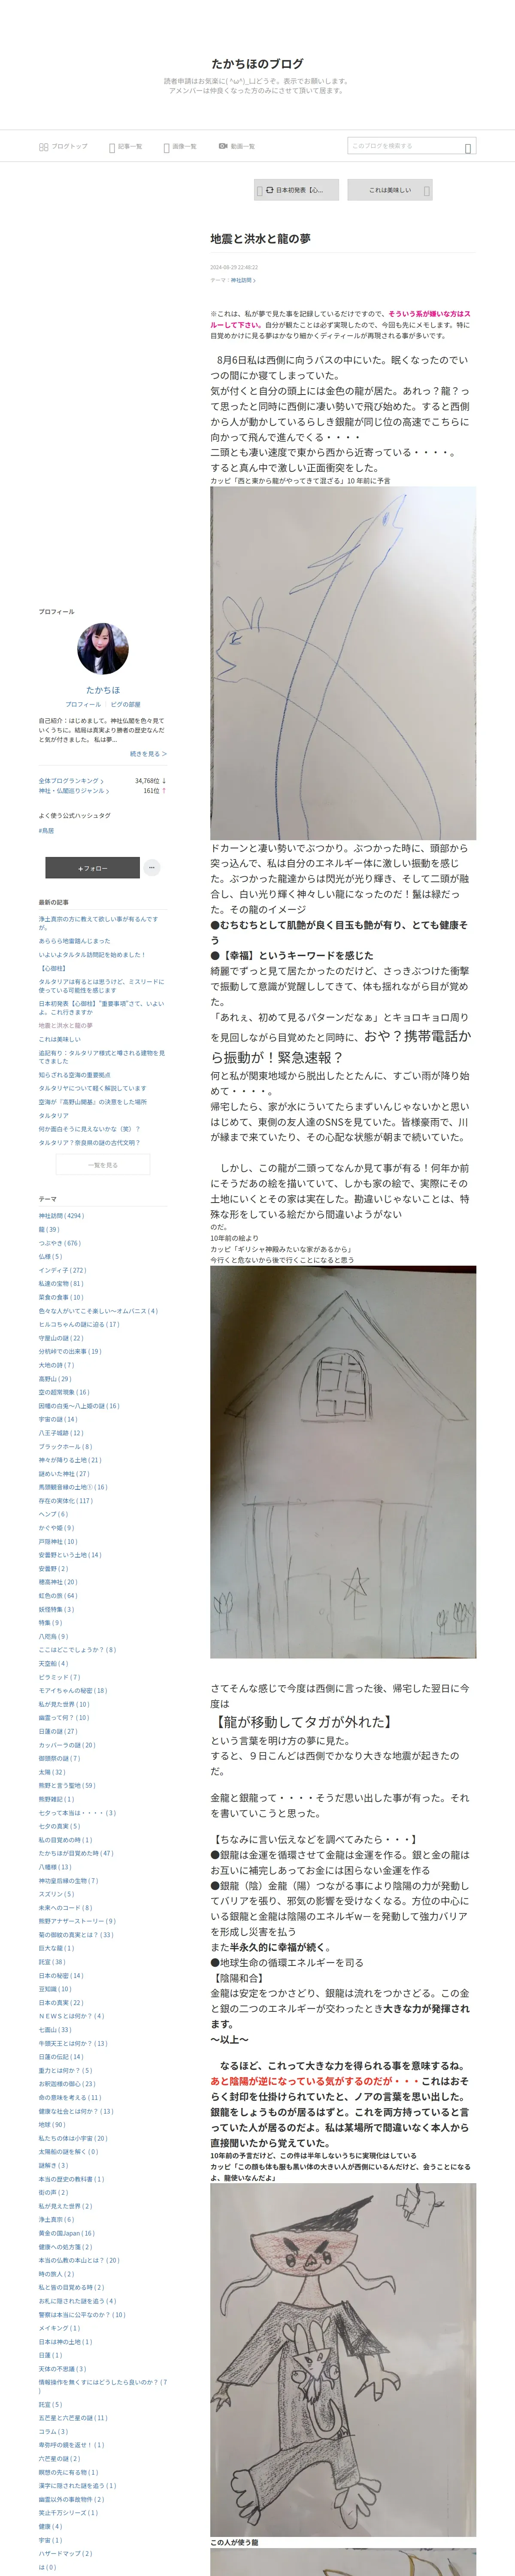 たかちほのブログ
読者申請はお気楽に( ^ω^)_凵どうぞ。表示でお願いします。
アメンバーは仲良くなった方のみにさせて頂いて居ます。
ブログトップ
記事一覧
画像一覧
動画一覧
このブログを検索する
日本初発表【心...
これは美味しい
地震と洪水と龍の夢
2024-08-29 22:48:22
テーマ：神社訪問
※これは、私が夢で見た事を記録しているだけですので、そういう系が嫌いな方はス
ルーして下さい。自分が観たことは必ず実現したので、今回も先にメモします。特に
目覚めかけに見る夢はかなり細かくディティールが再現される事が多いです。
8月6日私は西側に向うバスの中にいた。眠くなったのでい
つの間にか寝てしまっていた。
気が付くと自分の頭上には金色の龍が居た。あれっ？龍？っ
て思ったと同時に西側に凄い勢いで飛び始めた。すると西側
から人が動かしているらしき銀龍が同じ位の高速でこちらに
向かって飛んで進んでくる・・・・
二頭とも凄い速度で東から西から近寄っている・・・・。
すると真ん中で激しい正面衝突をした。
カッピ「西と東から龍がやってきて混ざる」10 年前に予言
ドカーンと凄い勢いでぶつかり。ぶつかった時に、頭部から
突っ込んで、私は自分のエネルギー体に激しい振動を感じ
た。ぶつかった龍達からは閃光が光り輝き、そして二頭が融
合し、白い光り輝く神々しい龍になったのだ！鬣は緑だっ
た。その龍のイメージ
●むちむちとして肌艶が良く目玉も艶が有り、とても健康そ
う
●【幸福】というキーワードを感じた
綺麗でずっと見て居たかったのだけど、さっきぶつけた衝撃
で振動して意識が覚醒してきて、体も揺れながら目が覚め
た。
「あれぇ、初めて見るパターンだなぁ」とキョロキョロ周り
を見回しながら目覚めたと同時に、おや？携帯電話か
ら振動が！緊急速報？
何と私が関東地域から脱出したとたんに、すごい雨が降り始
めて・・・・。
帰宅したら、家が水にういてたらまずいんじゃないかと思い
はじめて、東側の友人達のSNSを見ていた。皆様豪雨で、川
が緑まで来ていたり、その心配な状態が朝まで続いていた。
しかし、この龍が二頭ってなんか見て事が有る！何年か前
にそうだあの絵を描いていて、しかも家の絵で、実際にその
土地にいくとその家は実在した。勘違いじゃないことは、特
殊な形をしている絵だから間違いようがない
のだ。
10年前の絵より
カッピ「ギリシャ神殿みたいな家があるから」
今行くと危ないから後で行くことになると思う
さてそんな感じで今度は西側に言った後、帰宅した翌日に今
度は
【龍が移動してタガが外れた】
という言葉を明け方の夢に見た。
すると、９日こんどは西側でかなり大きな地震が起きたの
だ。
金龍と銀龍って・・・・そうだ思い出した事が有った。それ
を書いていこうと思った。
【ちなみに言い伝えなどを調べてみたら・・・】
●銀龍は金運を循環させて金龍は金運を作る。銀と金の龍は
お互いに補完しあってお金には困らない金運を作る
●銀龍（陰）金龍（陽）つながる事により陰陽の力が発動し
てバリアを張り、邪気の影響を受けなくなる。方位の中心に
いる銀龍と金龍は陰陽のエネルギwーを発動して強力バリア
を形成し災害を払う
また半永久的に幸福が続く。
●地球生命の循環エネルギーを司る
【陰陽和合】
金龍は安定をつかさどり、銀龍は流れをつかさどる。この金
と銀の二つのエネルギーが交わったとき大きな力が発揮され
ます。
～以上～
なるほど、これって大きな力を得られる事を意味するね。
あと陰陽が逆になっている気がするのだが・・・これはおそ
らく封印を仕掛けられていたと、ノアの言葉を思い出した。
銀龍をしょうものが居るはずと。これを両方持っていると言
っていた人が居るのだよ。私は某場所で間違いなく本人から
直接聞いたから覚えていた。
10年前の予言だけど、この件は半年しないうちに実現化はしている
カッピ「この顔も体も服も黒い体の大きい人が西側にいるんだけど、会うことになる
よ、龍使いなんだよ」
この人が使う龍
プロフィール
たかちほ
プロフィール｜ピグの部屋
自己紹介：はじめまして。神社仏閣を色々見て
いくうちに。結局は真実より勝者の歴史なんだ
と気が付きました。 私は夢...
続きを見る
全体ブログランキング 34,768位 ↓
神社・仏閣巡りジャンル 161位 ↑
よく使う公式ハッシュタグ
#鳥居
＋フォロー
最新の記事
浄土真宗の方に教えて欲しい事が有るんです
が。
あららら地雷踏んじまった
いよいよタルタル訪問記を始めました！
【心御柱】
タルタリアは有るとは思うけど、ミスリードに
使っている可能性を感じます
日本初発表【心御柱】"重要事項"さて、いよい
よ。これ行きますか
地震と洪水と龍の夢
これは美味しい
追記有り：タルタリア様式と噂される建物を見
てきました
知らざれる空海の重要拠点
タルタリヤについて軽く解説しています
空海が『高野山開基』の決意をした場所
タルタリア
何か面白そうに見えないかな（笑）？
タルタリア？奈良県の謎の古代文明？
一覧を見る
テーマ
神社訪問 ( 4294 )
龍 ( 39 )
つぶやき ( 676 )
仏様 ( 5 )
インディ子 ( 272 )
私達の宝物 ( 81 )
菜食の食事 ( 10 )
色々な人がいてこそ楽しい～オムバニス ( 4 )
ヒルコちゃんの謎に迫る ( 17 )
守屋山の謎 ( 22 )
分杭峠での出来事 ( 19 )
大地の詩 ( 7 )
高野山 ( 29 )
空の超常現象 ( 16 )
因幡の白兎～八上姫の謎 ( 16 )
宇宙の謎 ( 14 )
八王子城跡 ( 12 )
ブラックホール ( 8 )
神々が降りる土地 ( 21 )
謎めいた神社 ( 27 )
馬頭観音縁の土地① ( 16 )
存在の実体化 ( 117 )
ヘンプ ( 6 )
かぐや姫 ( 9 )
戸隠神社 ( 10 )
安曇野という土地 ( 14 )
安曇野 ( 2 )
穂高神社 ( 20 )
虹色の旅 ( 64 )
妖怪特集 ( 3 )
特集 ( 9 )
八咫烏 ( 9 )
ここはどこでしょうか？ ( 8 )
天空船 ( 4 )
ピラミッド ( 7 )
モアイちゃんの秘密 ( 18 )
私が見た世界 ( 10 )
幽霊って何？ ( 10 )
日蓮の謎 ( 27 )
カッバーラの謎 ( 20 )
御頭祭の謎 ( 7 )
太陽 ( 32 )
熊野と言う聖地 ( 59 )
熊野雑記 ( 1 )
七夕って本当は・・・・ ( 3 )
七夕の真実 ( 5 )
私の目覚めの時 ( 1 )
たかちほが目覚めた時 ( 47 )
八幡様 ( 13 )
神功皇后縁の生物 ( 7 )
スズリン ( 5 )
未来へのコード ( 8 )
熊野アナザーストーリー ( 9 )
菊の御紋の真実とは？ ( 33 )
巨大な龍 ( 1 )
託宣 ( 38 )
日本の秘密 ( 14 )
豆知識 ( 10 )
日本の真実 ( 22 )
ＮＥＷＳとは何か？ ( 4 )
七面山 ( 33 )
牛頭天王とは何か？ ( 13 )
日蓮の伝記 ( 14 )
重力とは何か？ ( 5 )
お釈迦様の御心 ( 23 )
命の意味を考える ( 11 )
健康な社会とは何か？ ( 13 )
地球 ( 90 )
私たちの体は小宇宙 ( 20 )
太陽船の謎を解く ( 0 )
謎解き ( 3 )
本当の歴史の教科書 ( 1 )
街の声 ( 2 )
私が見えた世界 ( 2 )
浄土真宗 ( 6 )
黄金の国Japan ( 16 )
健康への処方箋 ( 2 )
本当の仏教の本山とは？ ( 20 )
時の旅人 ( 2 )
私と皆の目覚める時 ( 2 )
お札に隠された謎を追う ( 4 )
警察は本当に公平なのか？ ( 10 )
メイキング ( 1 )
日本は神の土地 ( 1 )
日蓮 ( 1 )
天体の不思議 ( 3 )
情報操作を無くすにはどうしたら良いのか？ ( 7
)
託宣 ( 5 )
五芒星と六芒星の謎 ( 11 )
コラム ( 3 )
卑弥呼の鏡を返せ！ ( 1 )
六芒星の謎 ( 2 )
瞑想の先に有る物 ( 1 )
漢字に隠された謎を追う ( 1 )
幽霊以外の事故物件 ( 2 )
笑止千万シリーズ ( 1 )
健康 ( 4 )
宇宙 ( 1 )
ハザードマップ ( 2 )
は ( 0 )